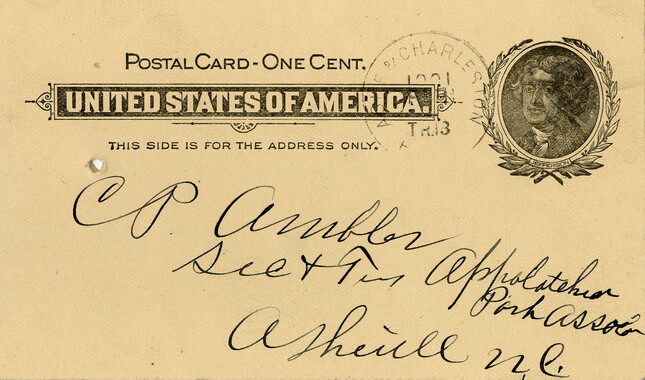 POSTAL CARD - ONE CENT.
UNITED STATES OF AMERICA.
THIS SIDE IS FOR THE ADDRESS ONLY.
& CHARLES
TR.13
JEFFERSON
C P Ambler
Sec & Tres Appalatchian
Park Assocn
Asheville N.C.